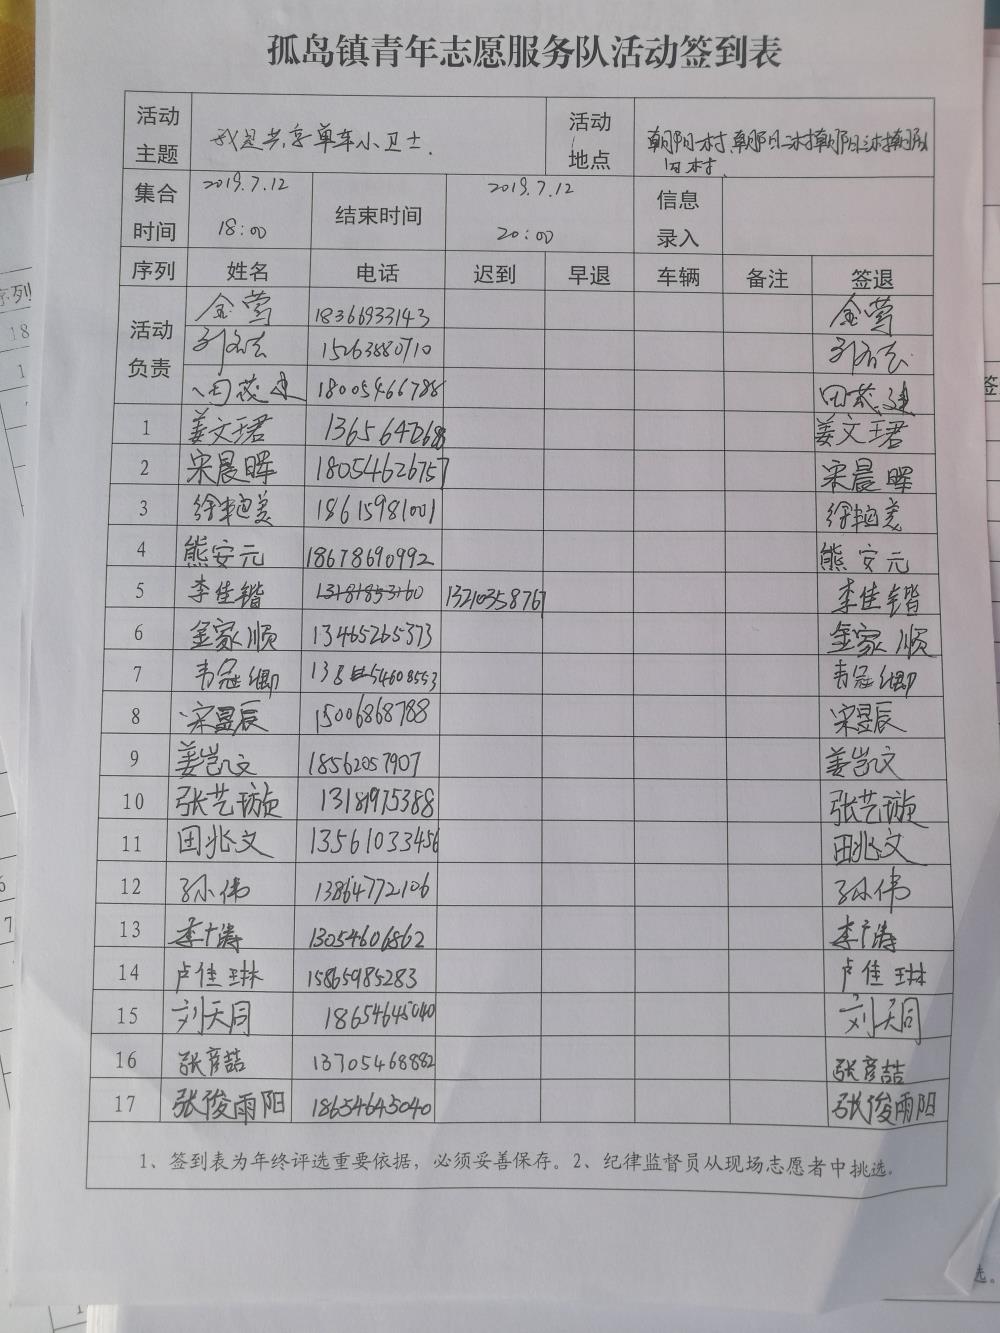 孤岛镇青年志愿服务队活动签到表
活动主题 我是共享单车小卫士. 活动地点 朝阳一村、朝阳二村、朝阳三村、朝阳四村
集合时间 2019.7.12 18:00 结束时间 2019.7.12 20:00 信息录入
序列 姓名 电话 迟到 早退 车辆 备注 签退
活动负责 金莺 18366933143 金莺
15263880710
田茂建 18005466788 田茂建
1 姜文珺 姜文珺
2 宋晨晖 18054626757 宋晨晖
3 徐艳美 18615981001 徐艳美
4 熊安元 18678690992 熊安元
5 李佳锴 13181853160 13210358767 李佳锴
6 金家顺 13465265373 金家顺
7 韦冠卿 138 54608553 韦冠卿
8 宋昱辰 15006868788 宋昱辰
9 姜岂文 18562057907 姜岂文
10 张艺璇 13181975388 张艺璇
11 田兆文 13561033456 田兆文
12 孙伟 13864772106 孙伟
13 李广涛 13054606862 李广涛
14 卢佳琳 15865985283 卢佳琳
15 刘天同 18654645040 刘天同
16 张彦喆 13705468882 张彦喆
17 张俊雨阳 18654645040 张俊雨阳
1、签到表为年终评选重要依据，必须妥善保存。2、纪律监督员从现场志愿者中挑选。
序列
18
签
选。